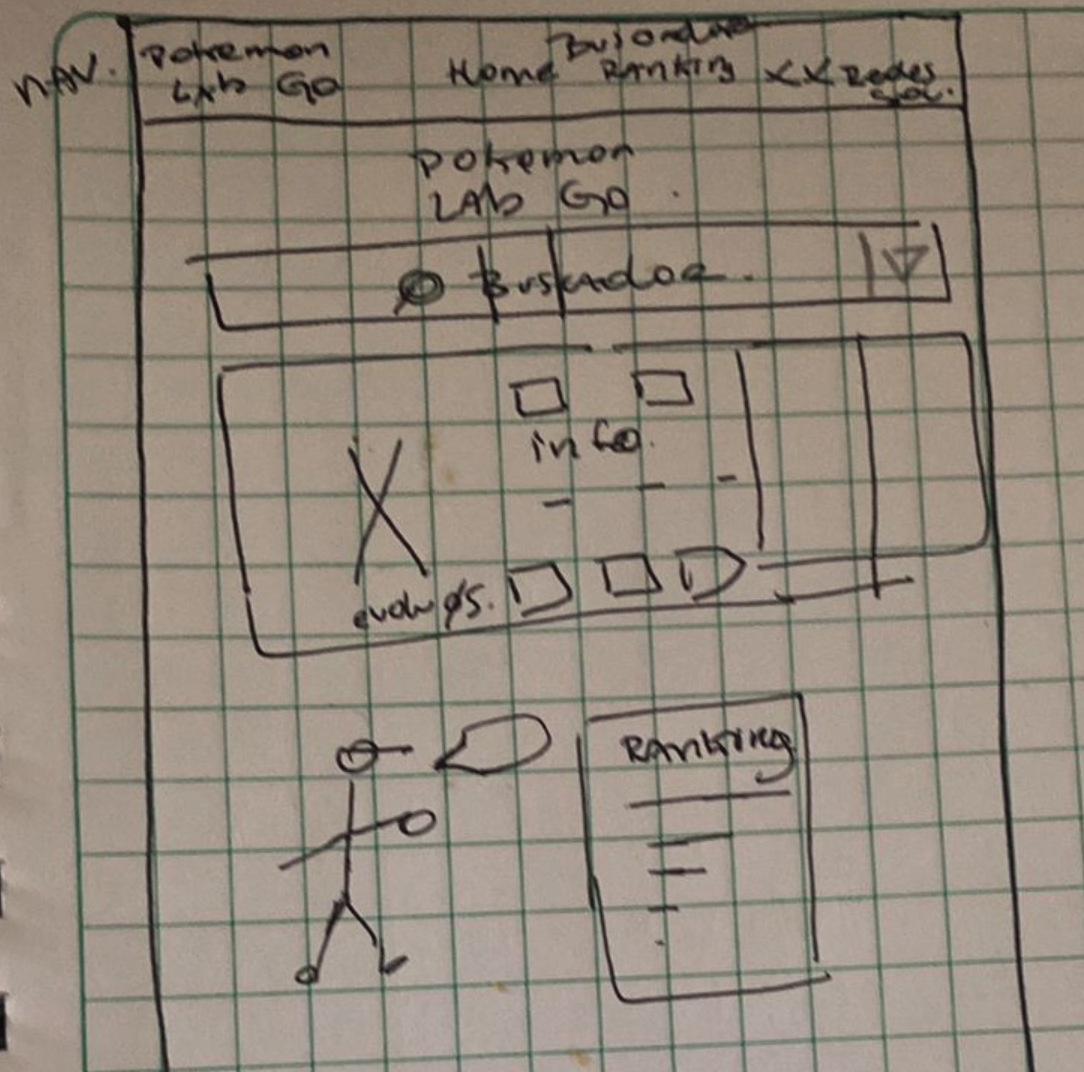 NAV.
Pokemon
LAb GO
Buscador
Home Ranking XX Redes
Soc.
Pokemon
LAb GO.
Buskador.
info.
evolu
Ranking